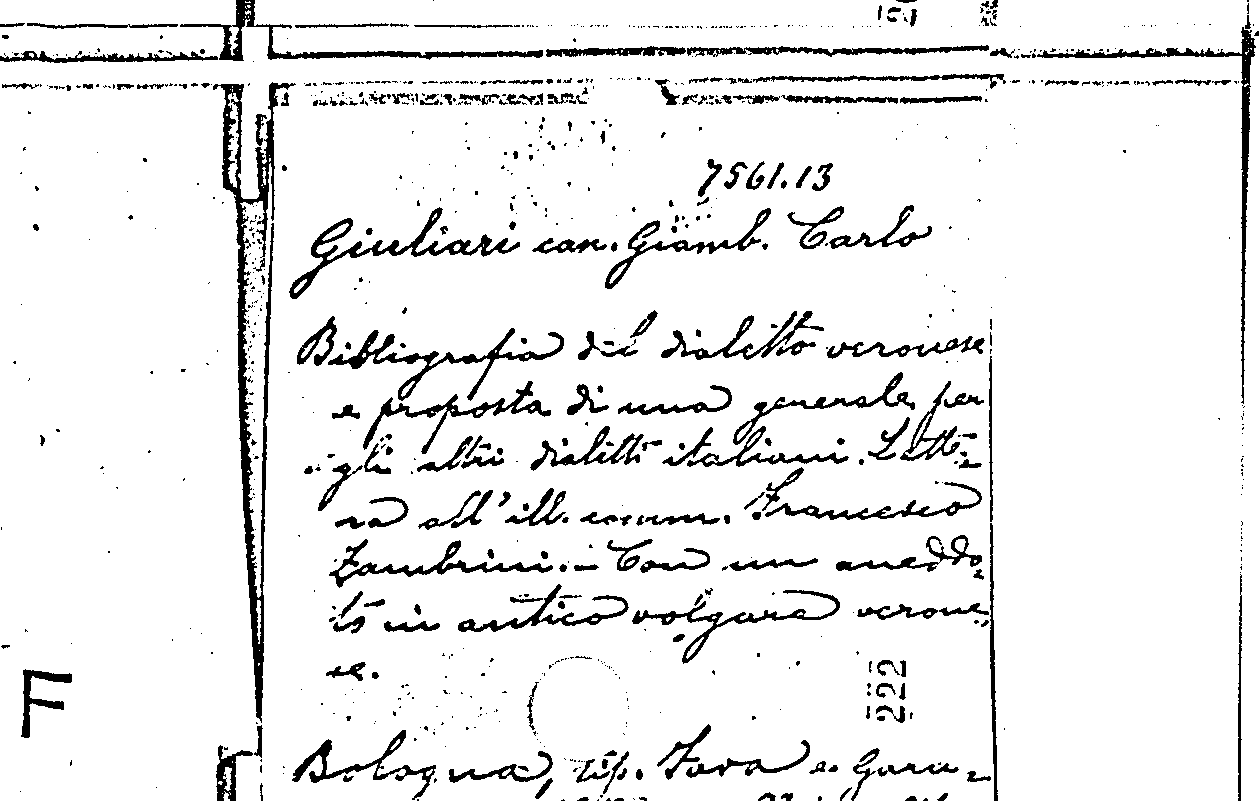 7561.13
Giuliari can. Giamb. Carlo
Bibliografia del dialetto veronese
e proposta di una generale per
gli altri dialetti italiani. Lette-
ra all'ill. comm. Francesco
Zambrini. - Con un aneddo-
to in antico volgare verone-
se.
222
F
Bologna, tip. Fava e Gara-